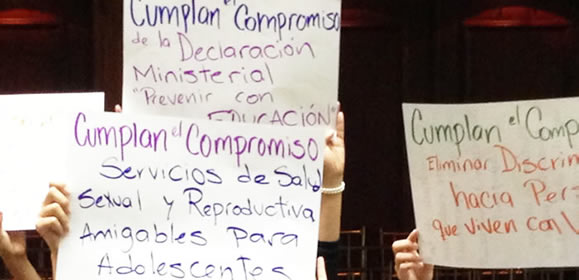 Cumplan el Compromiso
de la Declaración
Ministerial
"Prevenir con
EDUCACIÓN"
Cumplan el Compromiso
Servicios de Salud
Sexual y Reproductiva
Amigables para
Adolescentes
Cumplan el Comp
Eliminar Discrim
hacia Per
que viven con V